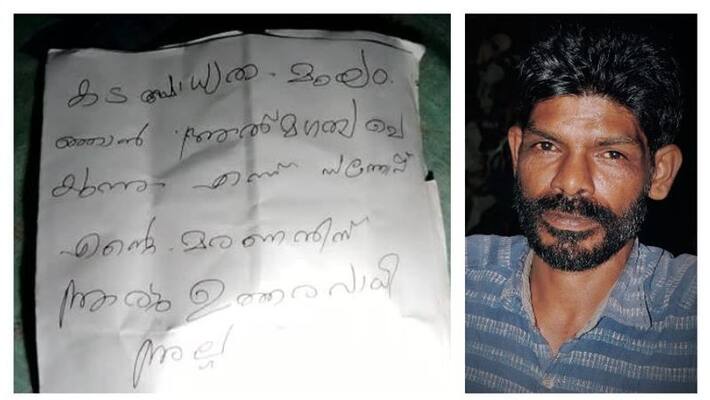 കടബാധ്യത മൂലം
ഞാൻ ആത്മഹത്യ ചെ
യ്യുന്നു എന്ന് സന്തോഷ്
എന്റെ മരണത്തിന്
ആരും ഉത്തരവാദി
അല്ല